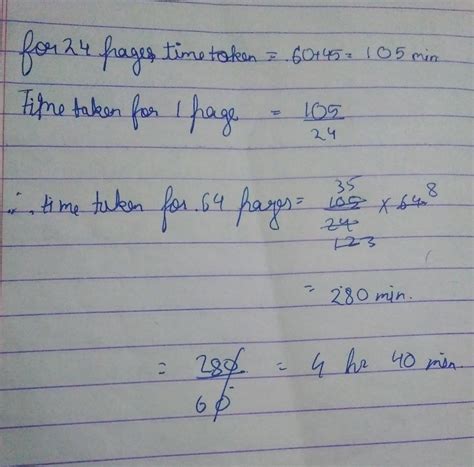 for 24 pages, time taken = 60+45 = 105 min
Time taken for 1 page = 105/24
∴ time taken for 64 pages = 35 105/24 × 64 8
12 3
= 280 min.
= 280/60 = 4 hr 40 min.